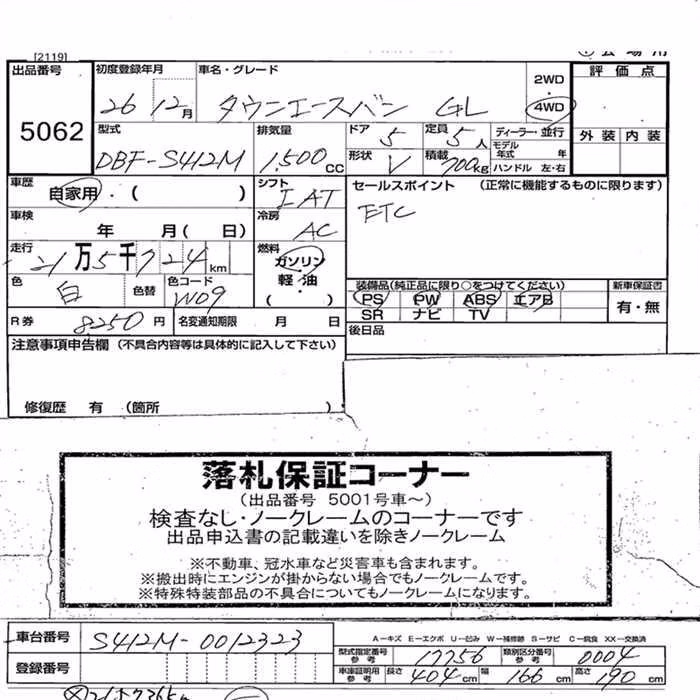 [2119]
出品番号 初度登録年月 車名・グレード 2WD 評価点
5062 26 12月 タウンエースバン GL 4WD
型式 排気量 ドア 定員 ディーラー・並行 外装 内装
DBF-S412M 1.500cc 5 5人 モデル年式 年
形状 V 積載 700kg ハンドル 左・右
車歴 自家用・( ) シフト IAT セールスポイント (正常に機能するものに限ります)
車検 年 月( 日) 冷房 AC ETC
走行 21万5千724km 燃料 ガソリン
軽・油
( )
色 白 色替 色コード W09
装備品(純正品に限り○をつけてください) 新車保証書
PS PW ABS エアB 有・無
SR ナビ TV
R券 8250円 名変通知期限 月 日 後日品
注意事項申告欄 (不具合内容等は具体的に記入して下さい)
修復歴 有 (箇所 )
落札保証コーナー
(出品番号 5001号車〜)
検査なし・ノークレームのコーナーです
出品申込書の記載違いを除きノークレーム
※不動車、冠水車など災害車も含まれます。
※搬出時にエンジンが掛からない場合でもノークレームです。
※特殊特装部品の不具合についてもノークレームになります。
車台番号 S412M-0012323 A-キズ E-エクボ U-凹み W-補修跡 S-サビ C-腐食 XX-交換済
型式指定番号 参考 17756 類別区分番号 参考 0004
登録番号 車庫証明用 参考 長さ 404cm 幅 166cm 高さ 190cm